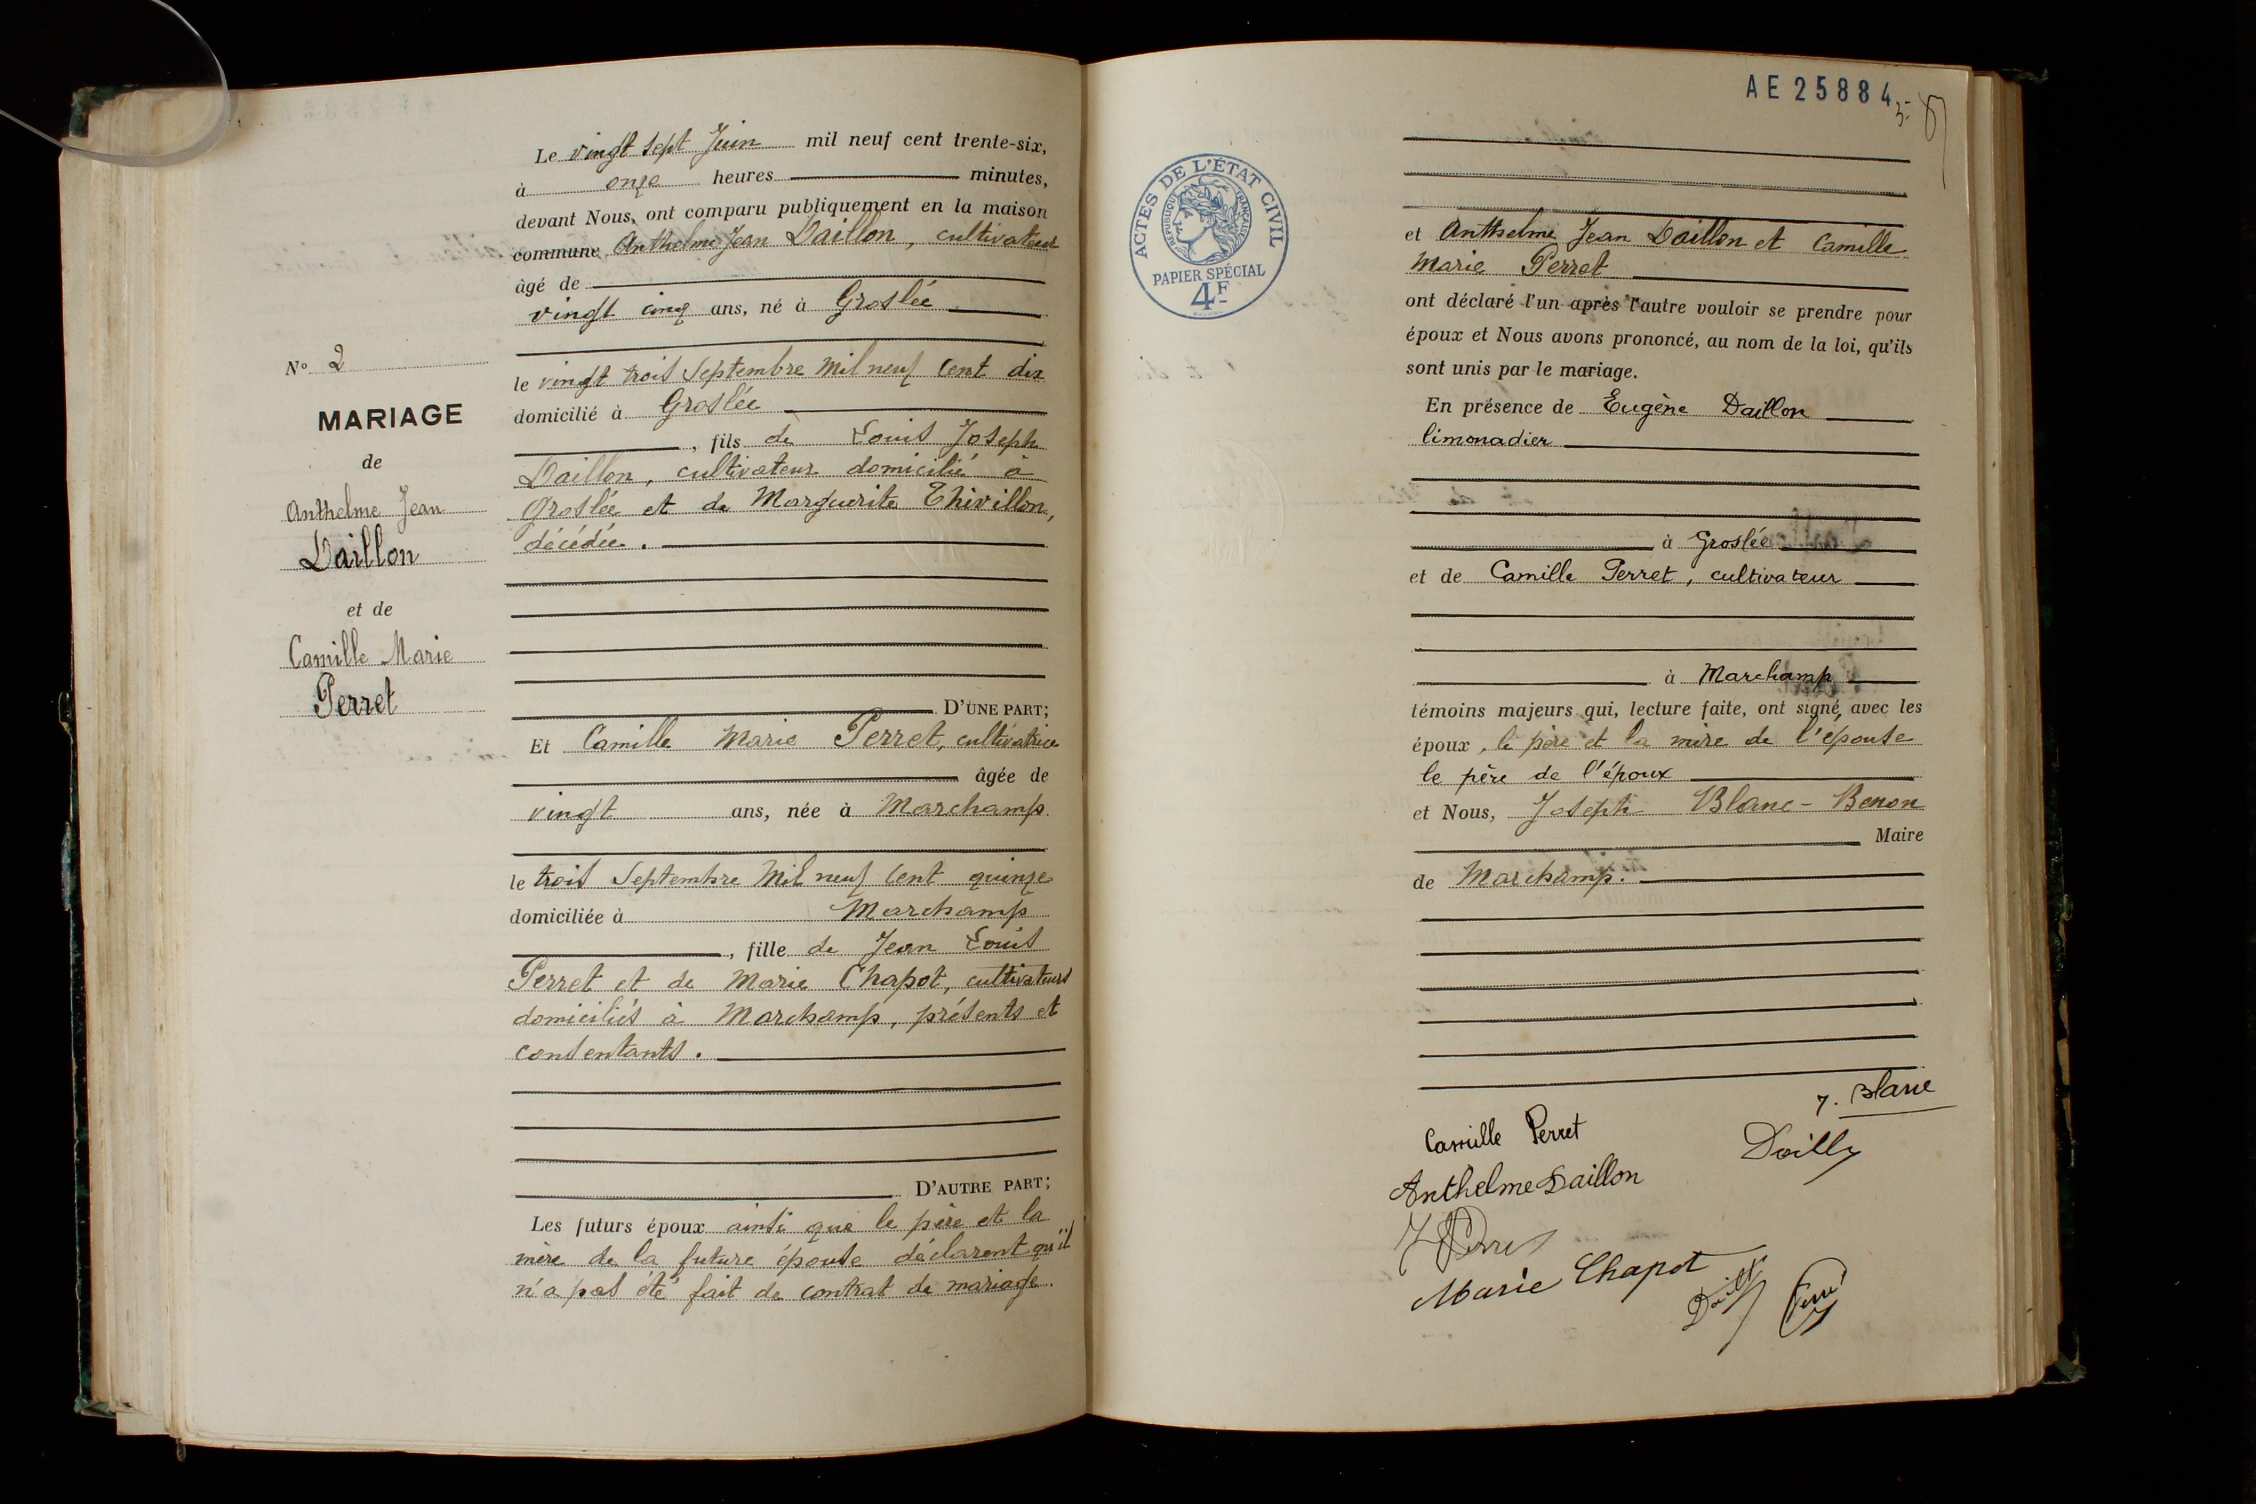 Le vingt sept Juin mil neuf cent trente-six,
à onze heures minutes,
devant Nous, ont comparu publiquement en la maison
commune Anthelme Jean Daillon, cultivateur
âgé de
vingt cinq ans, né à Groslée
le vingt trois Septembre mil neuf cent dix
domicilié à Groslée
, fils de Louis Joseph
Daillon, cultivateur domicilié à
Groslée et de Marguerite Thivillon,
décédée.
D'UNE PART;
Et Camille Marie Perret, cultivatrice
âgée de
vingt ans, née à Marchamp
le trois Septembre mil neuf cent quinze
domiciliée à Marchamp
, fille de Jean Louis
Perret et de Marie Chapot, cultivateurs
domiciliés à Marchamp, présents et
consentants.
D'AUTRE PART;
Les futurs époux ainsi que le père et la
mère de la future épouse déclarent qu'il
n'a pas été fait de contrat de mariage.
N° 2
MARIAGE
de
Anthelme Jean
Daillon
et de
Camille Marie
Perret
AE 25884
ACTES DE L'ÉTAT CIVIL
RÉPUBLIQUE FRANÇAISE
PAPIER SPÉCIAL
4F
et Anthelme Jean Daillon et Camille
Marie Perret
ont déclaré l'un après l'autre vouloir se prendre pour
époux et Nous avons prononcé, au nom de la loi, qu'ils
sont unis par le mariage.
En présence de Eugène Daillon
limonadier
à Groslée
et de Camille Perret, cultivateur
à Marchamp
témoins majeurs qui, lecture faite, ont signé avec les
époux, le père et la mère de l'épouse
le père de l'époux
et Nous, Joseph Blanc-Benon
Maire
de Marchamp.
J. Blanc
Camille Perret
Anthelme Daillon
Marie Chapot